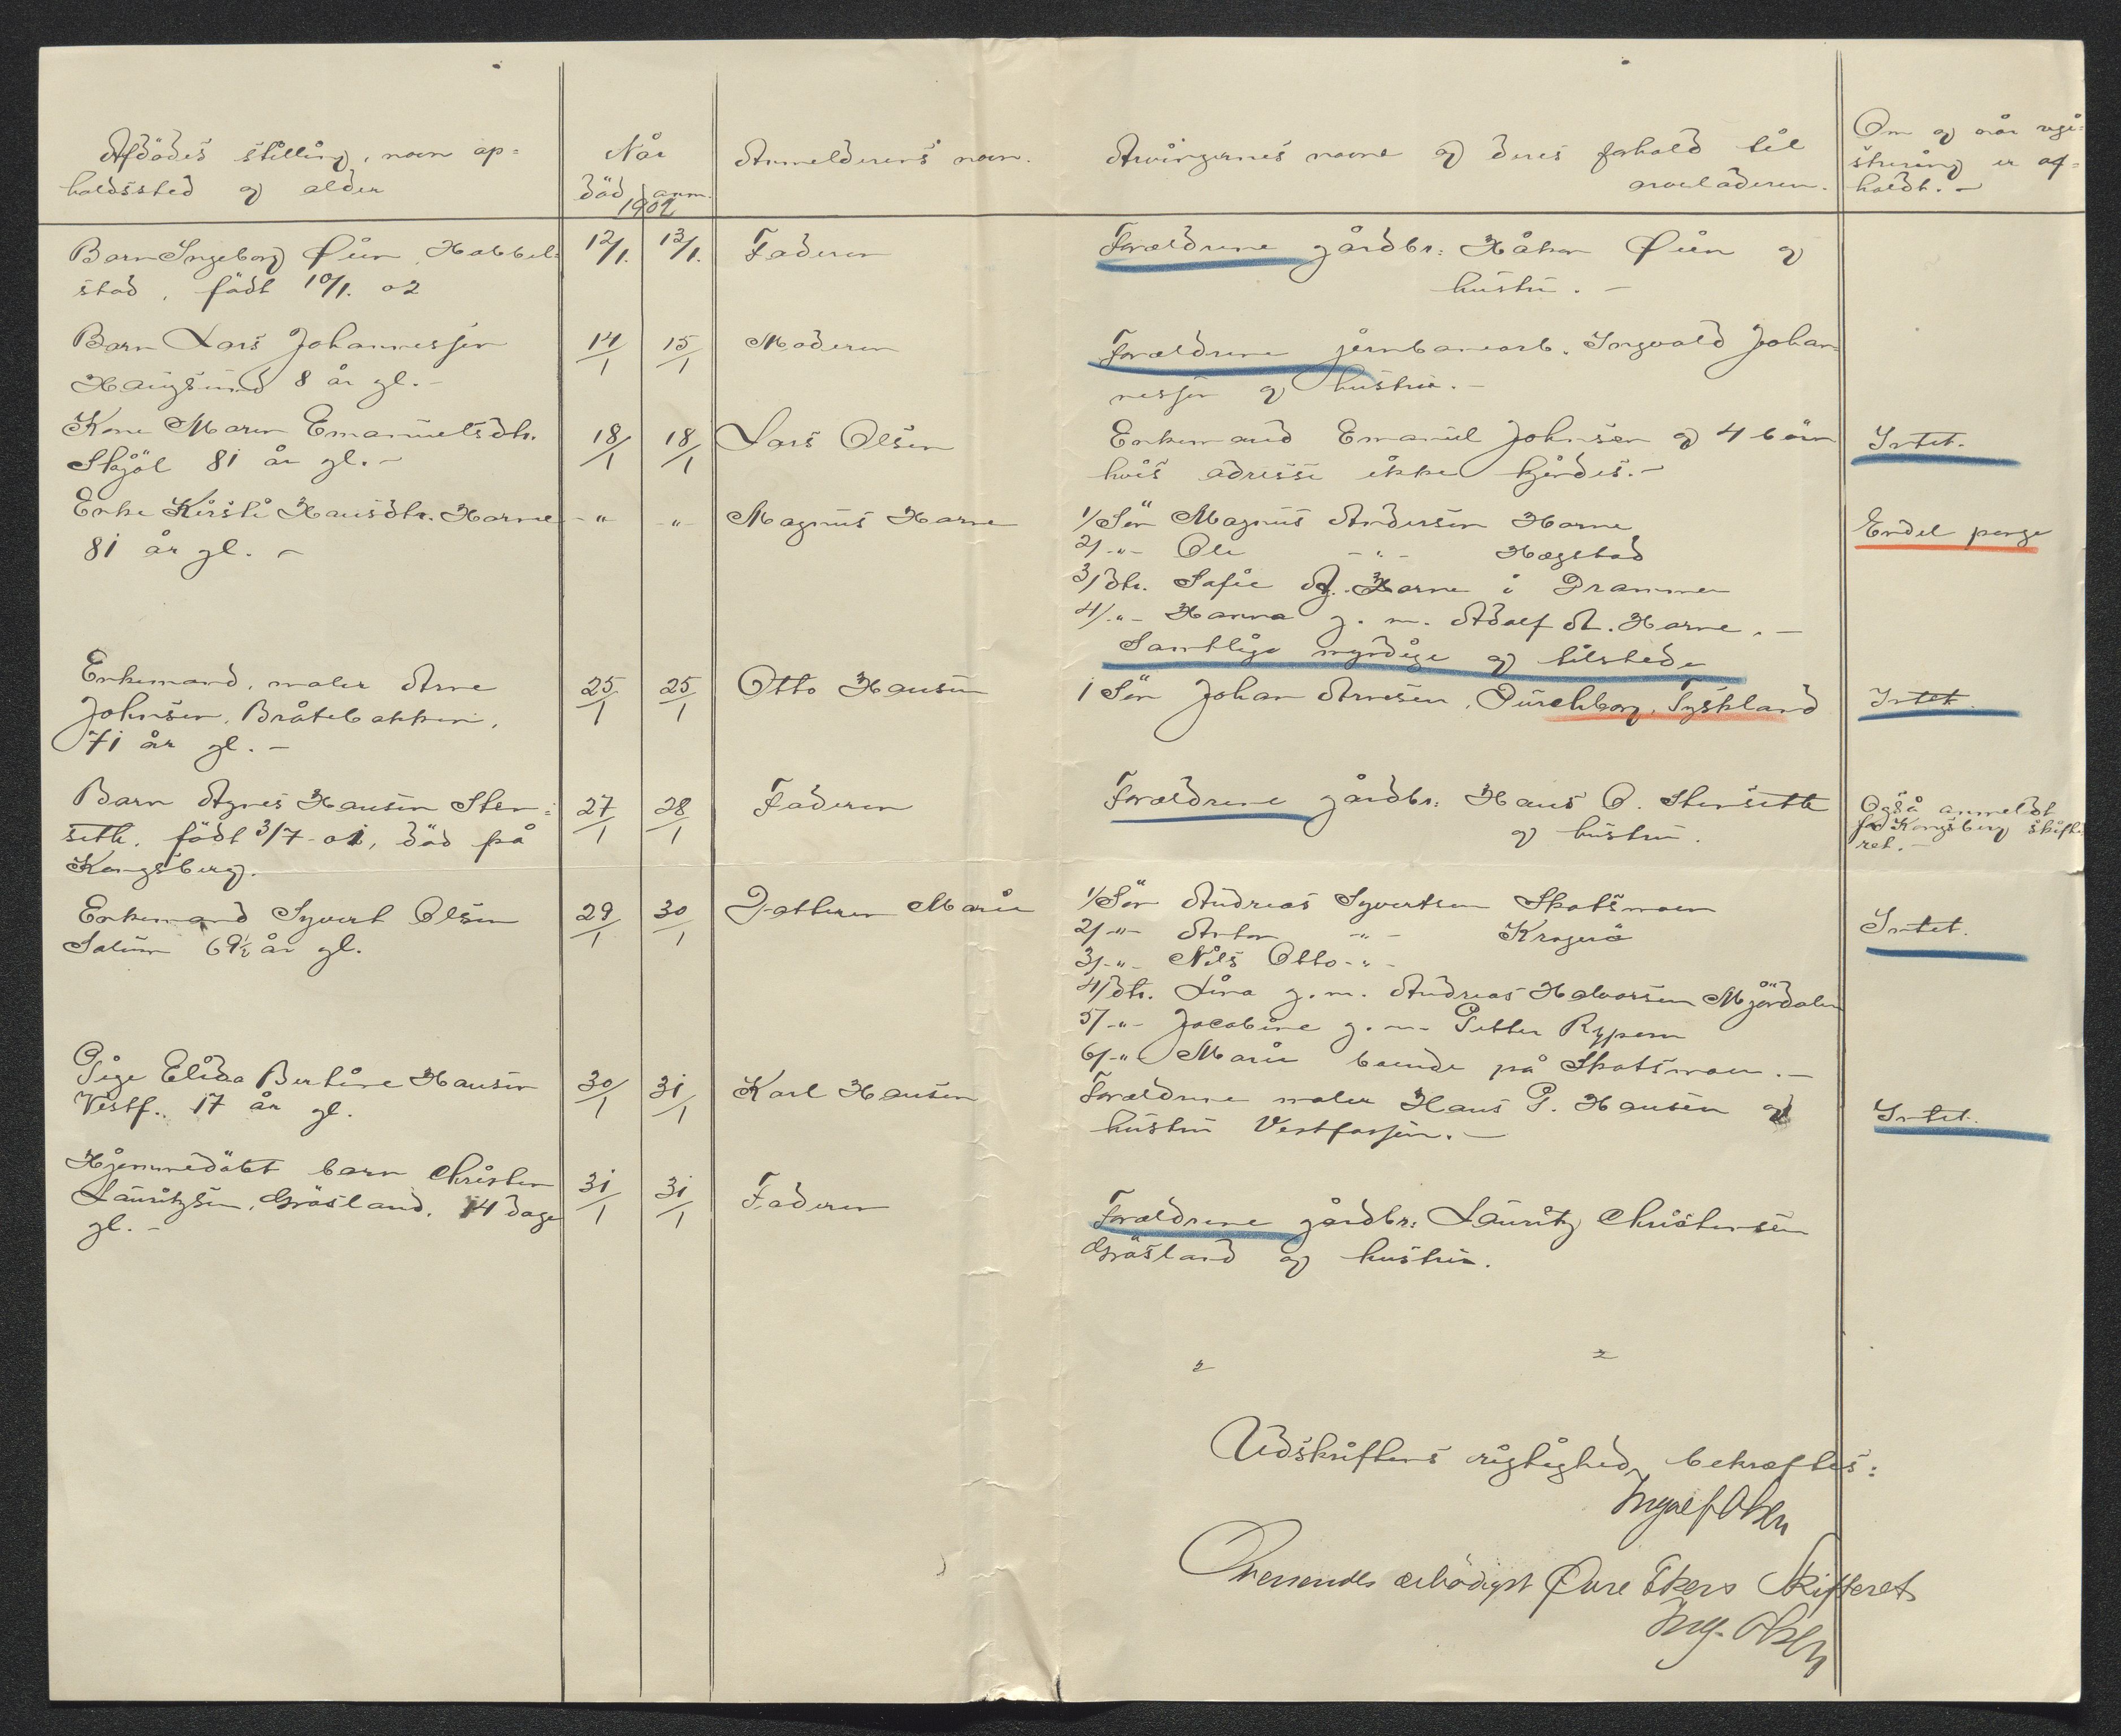 Afdödes stilling, navn op=
holdssted og alder
Når
död anm.
1902
Anmelderens navn.
Arvingernes navne og deres forhold til
arveladeren.
Om og når regi=
strering er af=
holdt. -
Barn Ingeborg Øen, Hobbel=
stad, födt 10/1. 02
12/1. 13/1.
Faderen
Forældrene gårdbr: Håkon Øen og
hustru. -
Barn Lars Johannessen
Haugsund 8 år gl. -
14/1 15/1
Moderen
Forældrene jernbanearb. Ingvald Johan
nessen og hustru. -
Kone Maren Emanuelsdtr.
Skjöl 81 år gl. -
18/1 18/1
Lars Olsen
Enkemand Emanuel Johnsen og 4 börn
hvis adresse ikke kjendes. -
Intet.
Enke Kirsti Hansdtr. Horne
81 år gl. -
-"- -"-
Magnus Horne
1/ Sön Magnus Andersen Horne
2/ -"- Ole -"- Hægstad
3/ dtr. Sofie A. Horne i Drammen
4/ -"- Hanna g. m. Adolf A. Horne. -
Samtlige myndige og tilstede
Endel penge
Enkemand, maler Arne
Johnsen, Bråtebakken,
71 år gl. -
25/1 25/1
Otto Hansen
1 Sön Johan Arnesen, Tyskland
Intet.
Barn Agnes Hansen Sten=
seth. födt 3/7-01, död på
Kongsberg.
27/1 28/1
Faderen
Forældrene gårdbr: Hans O. Stenseth
og hustru.
Også anmeldt
for Kongsberg skifte
ret. -
Enkemand Syvert Olsen
69½ år gl.
29/1 30/1
Datteren Marie
1/ Sön Andreas Syvertsen Skotsmoen
2/ -"- Anton -"- Kragerö
3/ -"- Nils Otto -"-
4/ dtr. Lina g. m. Andreas Halvorsen Mjöndalen
5/ -"- Jacobine g. m. Petter Rypern
6/ -"- Marie boende på Skotsmoen. -
Intet.
Pige Elida Bertine Hansen
Vestf. 17 år gl.
30/1 31/1
Karl Hansen
Forældrene maler Hans P. Hansen og
hustru Vestfossen. -
Intet.
Hjemmedöbt barn Christen
Lauritzsen, Gräsland. 14 dage
gl. -
31/1 31/1
Faderen
Forældrene gårdbr: Lauritz Christensen
Gräsland og hustru.
Udskriftens rigtighed bekræftes:
Ingvald Olsen
Oversendes ærbödigst Øvre Ekers Skifteret
Ing. Olsen